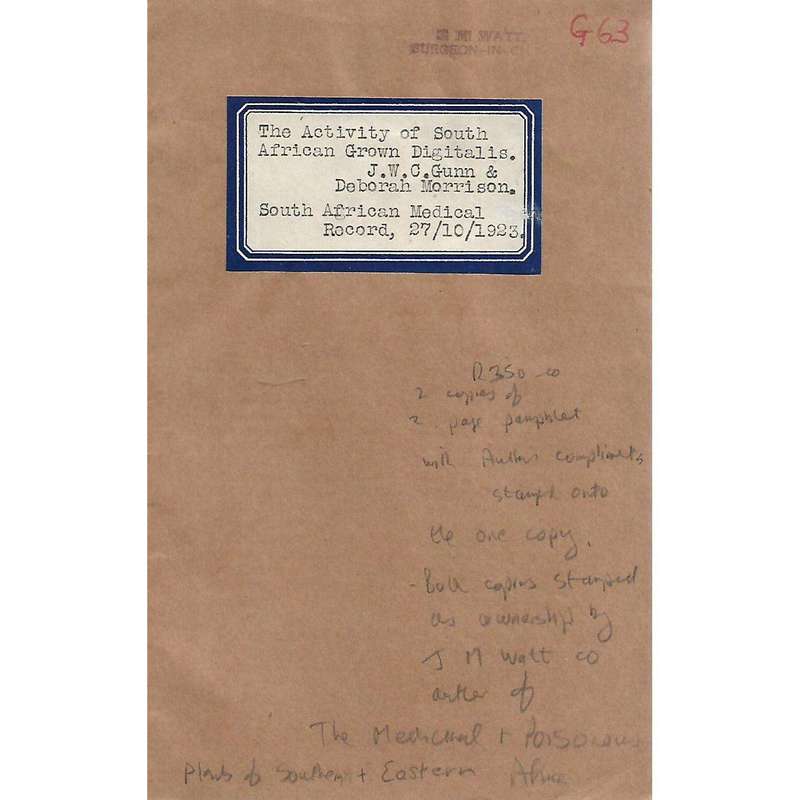 G63
J M WATT.
SURGEON-IN-
The Activity of South
African Grown Digitalis.
J.W.C.Gunn &
Deborah Morrison.
South African Medical
Record, 27/10/1923.
R350-00
2 copies of
2 page pamphlet
with Authors compliments
stamped onto
the one copy.
- Both copies stamped
as ownership by
J M Watt co
author of
The Medicinal + Poisonous
Plants of Southern + Eastern Africa